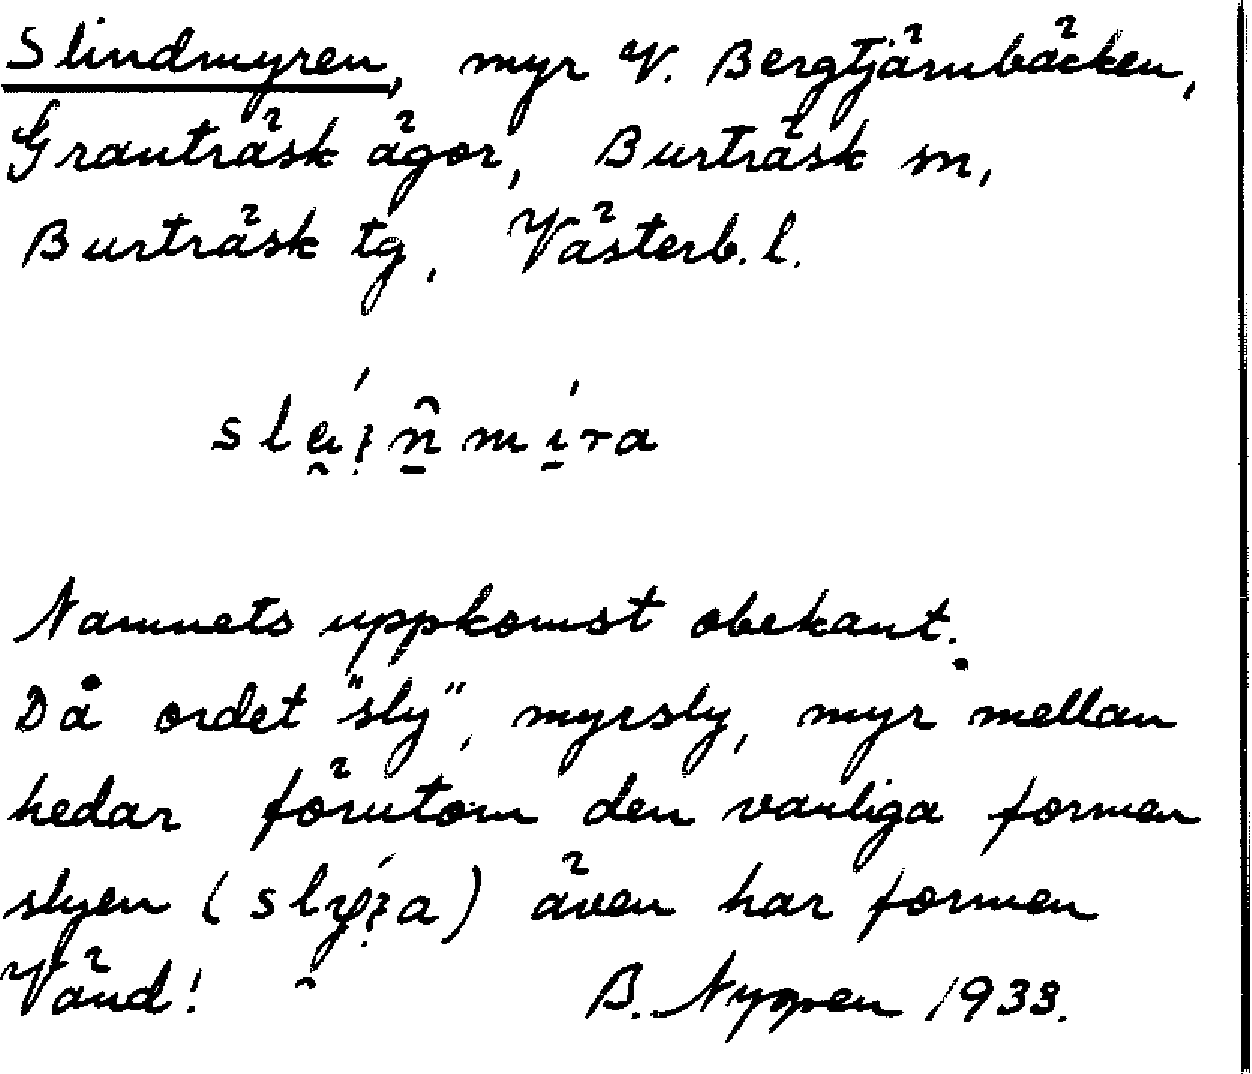 Slindmyren, myr V. Bergtjärnbäcken,
Granträsk ägor, Burträsk sn,
Burträsk tg, Västerb. l.
Namnets uppkomst obekant.
Då ordet "sly", myrsly, myr mellan
hedar förutom den vanliga formen
slyen ( ) även har formen
Vänd! B. Nygren 1933.